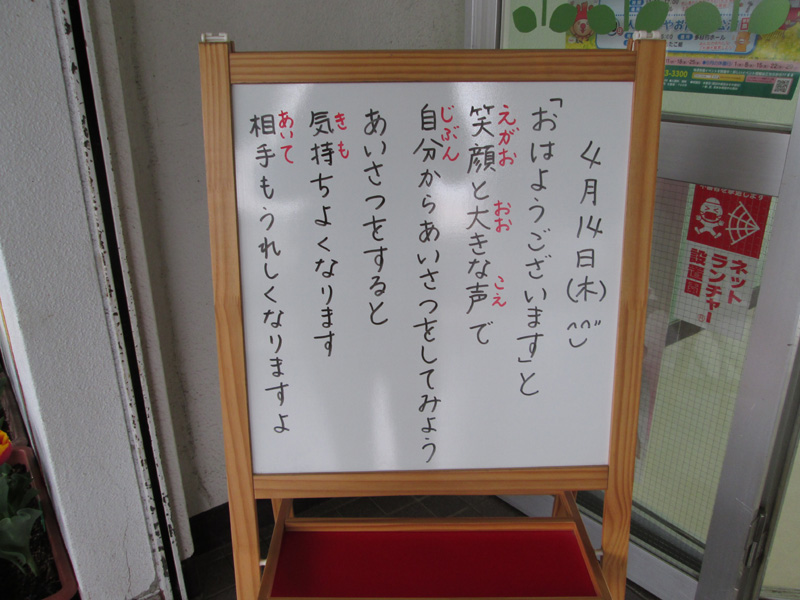 4月14日(木)
「おはようございます」と
笑顔と大きな声で
えがお おお こえ
自分からあいさつをしてみよう
じぶん
あいさつをすると
気持ちよくなります
きも
相手もうれしくなりますよ
あいて
ネット
ランチャー
設置園
3-3300